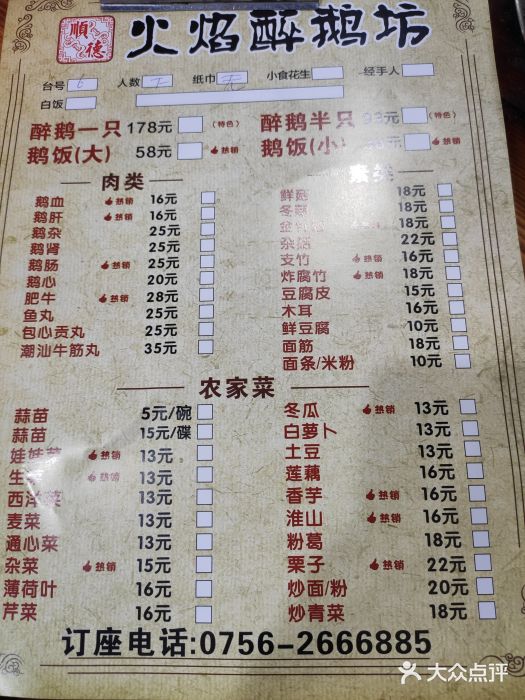 順德 火焰醉鹅坊
台号 6 人数 纸巾 小食花生 经手人
白饭
醉鹅一只 178元 (特色) 醉鹅半只 93元 (特色)
鹅饭(大) 58元 热销 鹅饭(小) 热销
肉类
鹅血 热销 16元 鲜菇 18元
鹅肝 热销 16元 冬菇 18元
鹅杂 25元 18元
鹅肾 25元 杂菇 22元
鹅肠 热销 25元 支竹 热销 16元
鹅心 20元 炸腐竹 热销 18元
肥牛 热销 28元 豆腐皮 15元
鱼丸 25元 木耳 16元
包心贡丸 25元 鲜豆腐 10元
潮汕牛筋丸 35元 面筋 18元
面条/米粉 10元
农家菜
蒜苗 5元/碗 冬瓜 热销 13元
蒜苗 15元/碟 白萝卜 13元
娃娃菜 热销 13元 土豆 13元
生菜 热销 13元 莲藕 16元
西洋菜 13元 香芋 热销 16元
麦菜 13元 淮山 热销 16元
通心菜 13元 粉葛 18元
杂菜 热销 15元 栗子 热销 22元
薄荷叶 16元 炒面/粉 20元
芹菜 16元 炒青菜 18元
订座电话:0756-2666885
大众点评